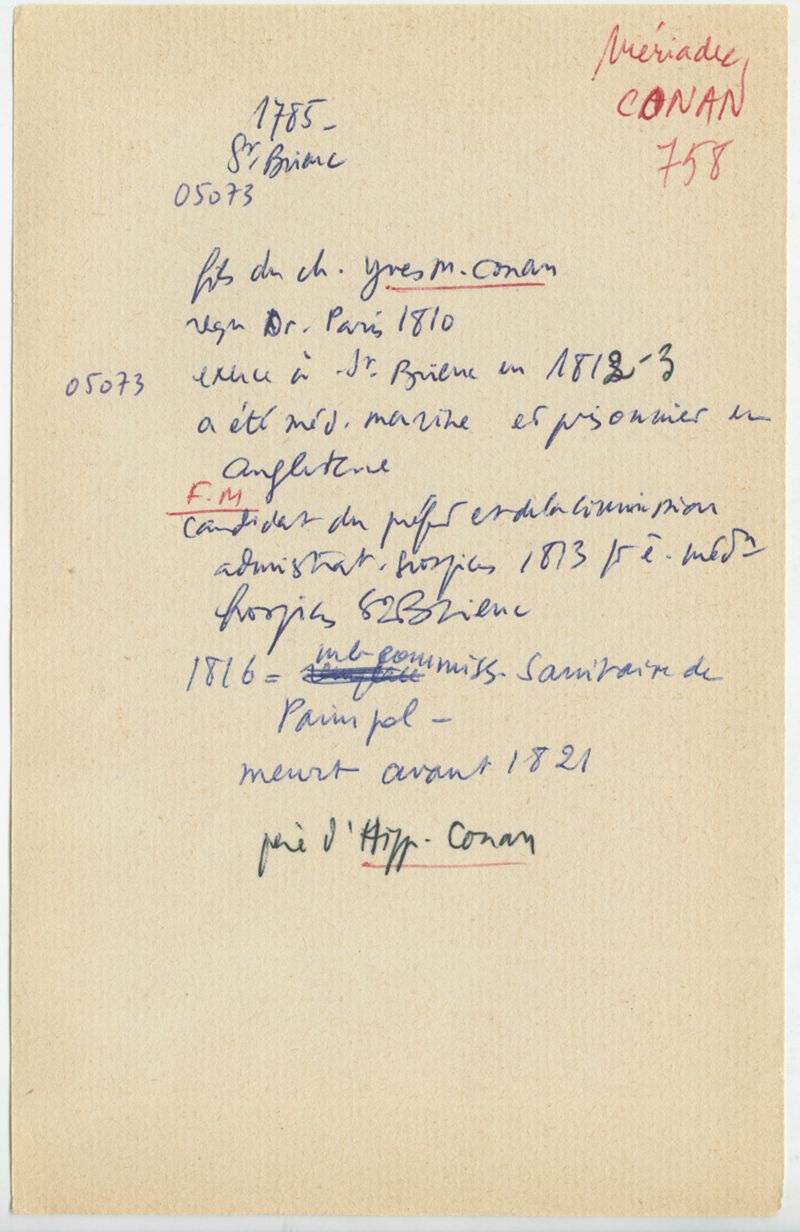 Mériadec
CONAN
758
1785-
St Brieuc
05073
fils du ch. Yves M. Conan
reçu Dr. Paris 1810
05073 exerce à St. Brieuc en 1812-3
a été méd. marine et prisonnier en
Angleterre
F.M
candidat du préfet et de la commission
administrat. hospices 1813 pr ê. médn
hospices St Brieuc
1816 = mb commiss. Sanitaire de
Paimpol -
meurt avant 1821
père d'Hipp. Conan